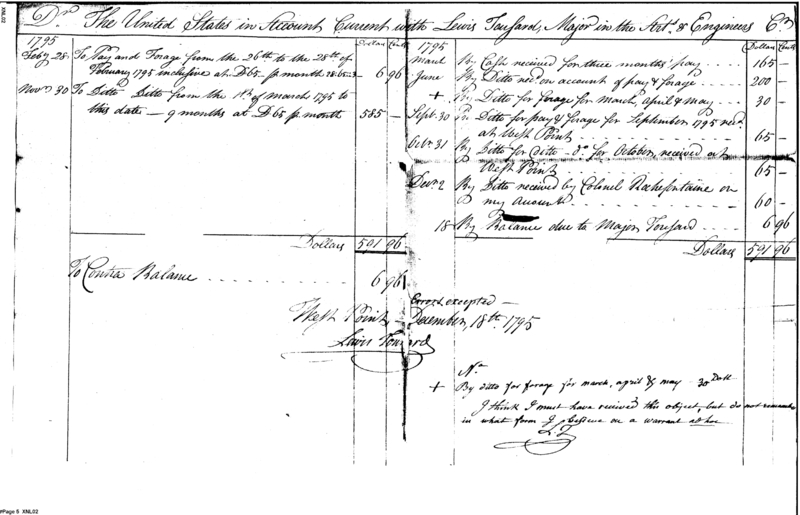 XNL02
Dr. The United States in Account Current with Lewis Tousard, Major in the Artl. & Engineers Cr.
Dollars Cents
1795
Feby 28 To Pay and Forage from the 26th to the 28th of
February 1795 inclusive at D65 pr month 6 96
Novr 30 To Ditto Ditto from the 1st of march 1795 to
this date — 9 months at D65 pr month 585 —
Dollars 591 96
To Contra Balance 6 96
Dollars Cents
1795
March By Cash received for three months' pay 165 —
June By Ditto recd. on account of pay & forage 200
+ By Ditto for forage for March, April & May 30 —
Sept. 30 By Ditto for pay & forage for September 1795 recd.
at West Point 65 —
Octr. 31 By Ditto for Ditto Do for October received at
West Point 65 —
Decr. 2 By Ditto received by Colonel Rochefontaine on
my account 60 —
18 By Balance due to Major Tousard 6 96
Dollars 591 96
Errors excepted —
West Point — December, 18th. 1795
Lewis Tousard
Na
+ By ditto for forage for march, april & may 30 Doll
I think I must have received this object, but do not remember
in what form I on a warrant ad hoc
L. T
#Page 5 XNL02